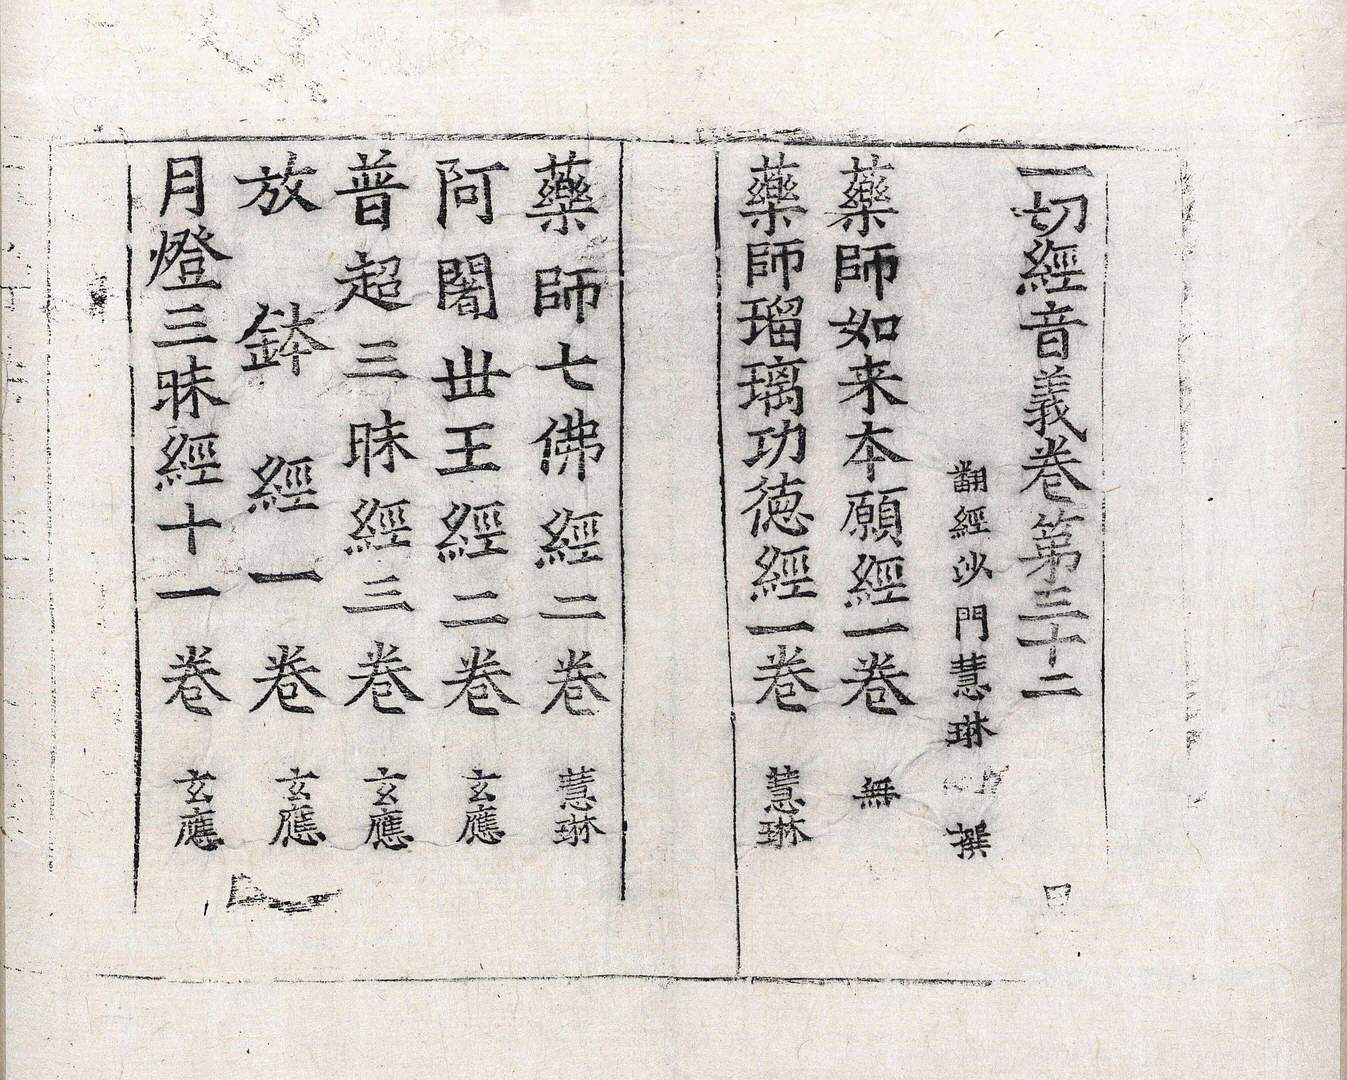 一切經音義卷第三十二
翻經沙門慧琳撰
藥師如来本願經一卷 無
藥師瑠璃功徳經一卷 慧琳
藥師七佛經二卷 慧琳
阿闍丗王經二卷 玄應
普超三昧經三卷 玄應
放鉢經一卷 玄應
月燈三昧經十一卷 玄應